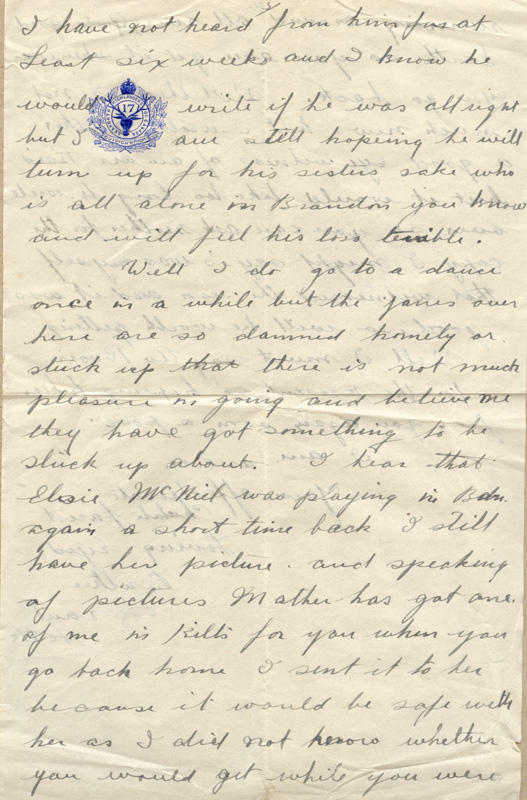 I have not heard from him for at
Least six weeks and I know he
would write if he was allright
17
but I am still hoping he will
turn up for his sisters sake who
is all alone in Brandon you know
and will feel his loss terrible.
Well I do go to a dance
once in a while but the janes over
here are so damned homely or
stuck up that there is not much
pleasure in going and believe me
they have got something to be
stuck up about. I hear that
Elsie McNiel was playing in Bdn.
again a short time back I still
have her picture. and speaking
of pictures Mother has got one.
of me in Kilts for you when you
go back home I sent it to her
because it would be safe with
her as I did not know whether
you would get while you were